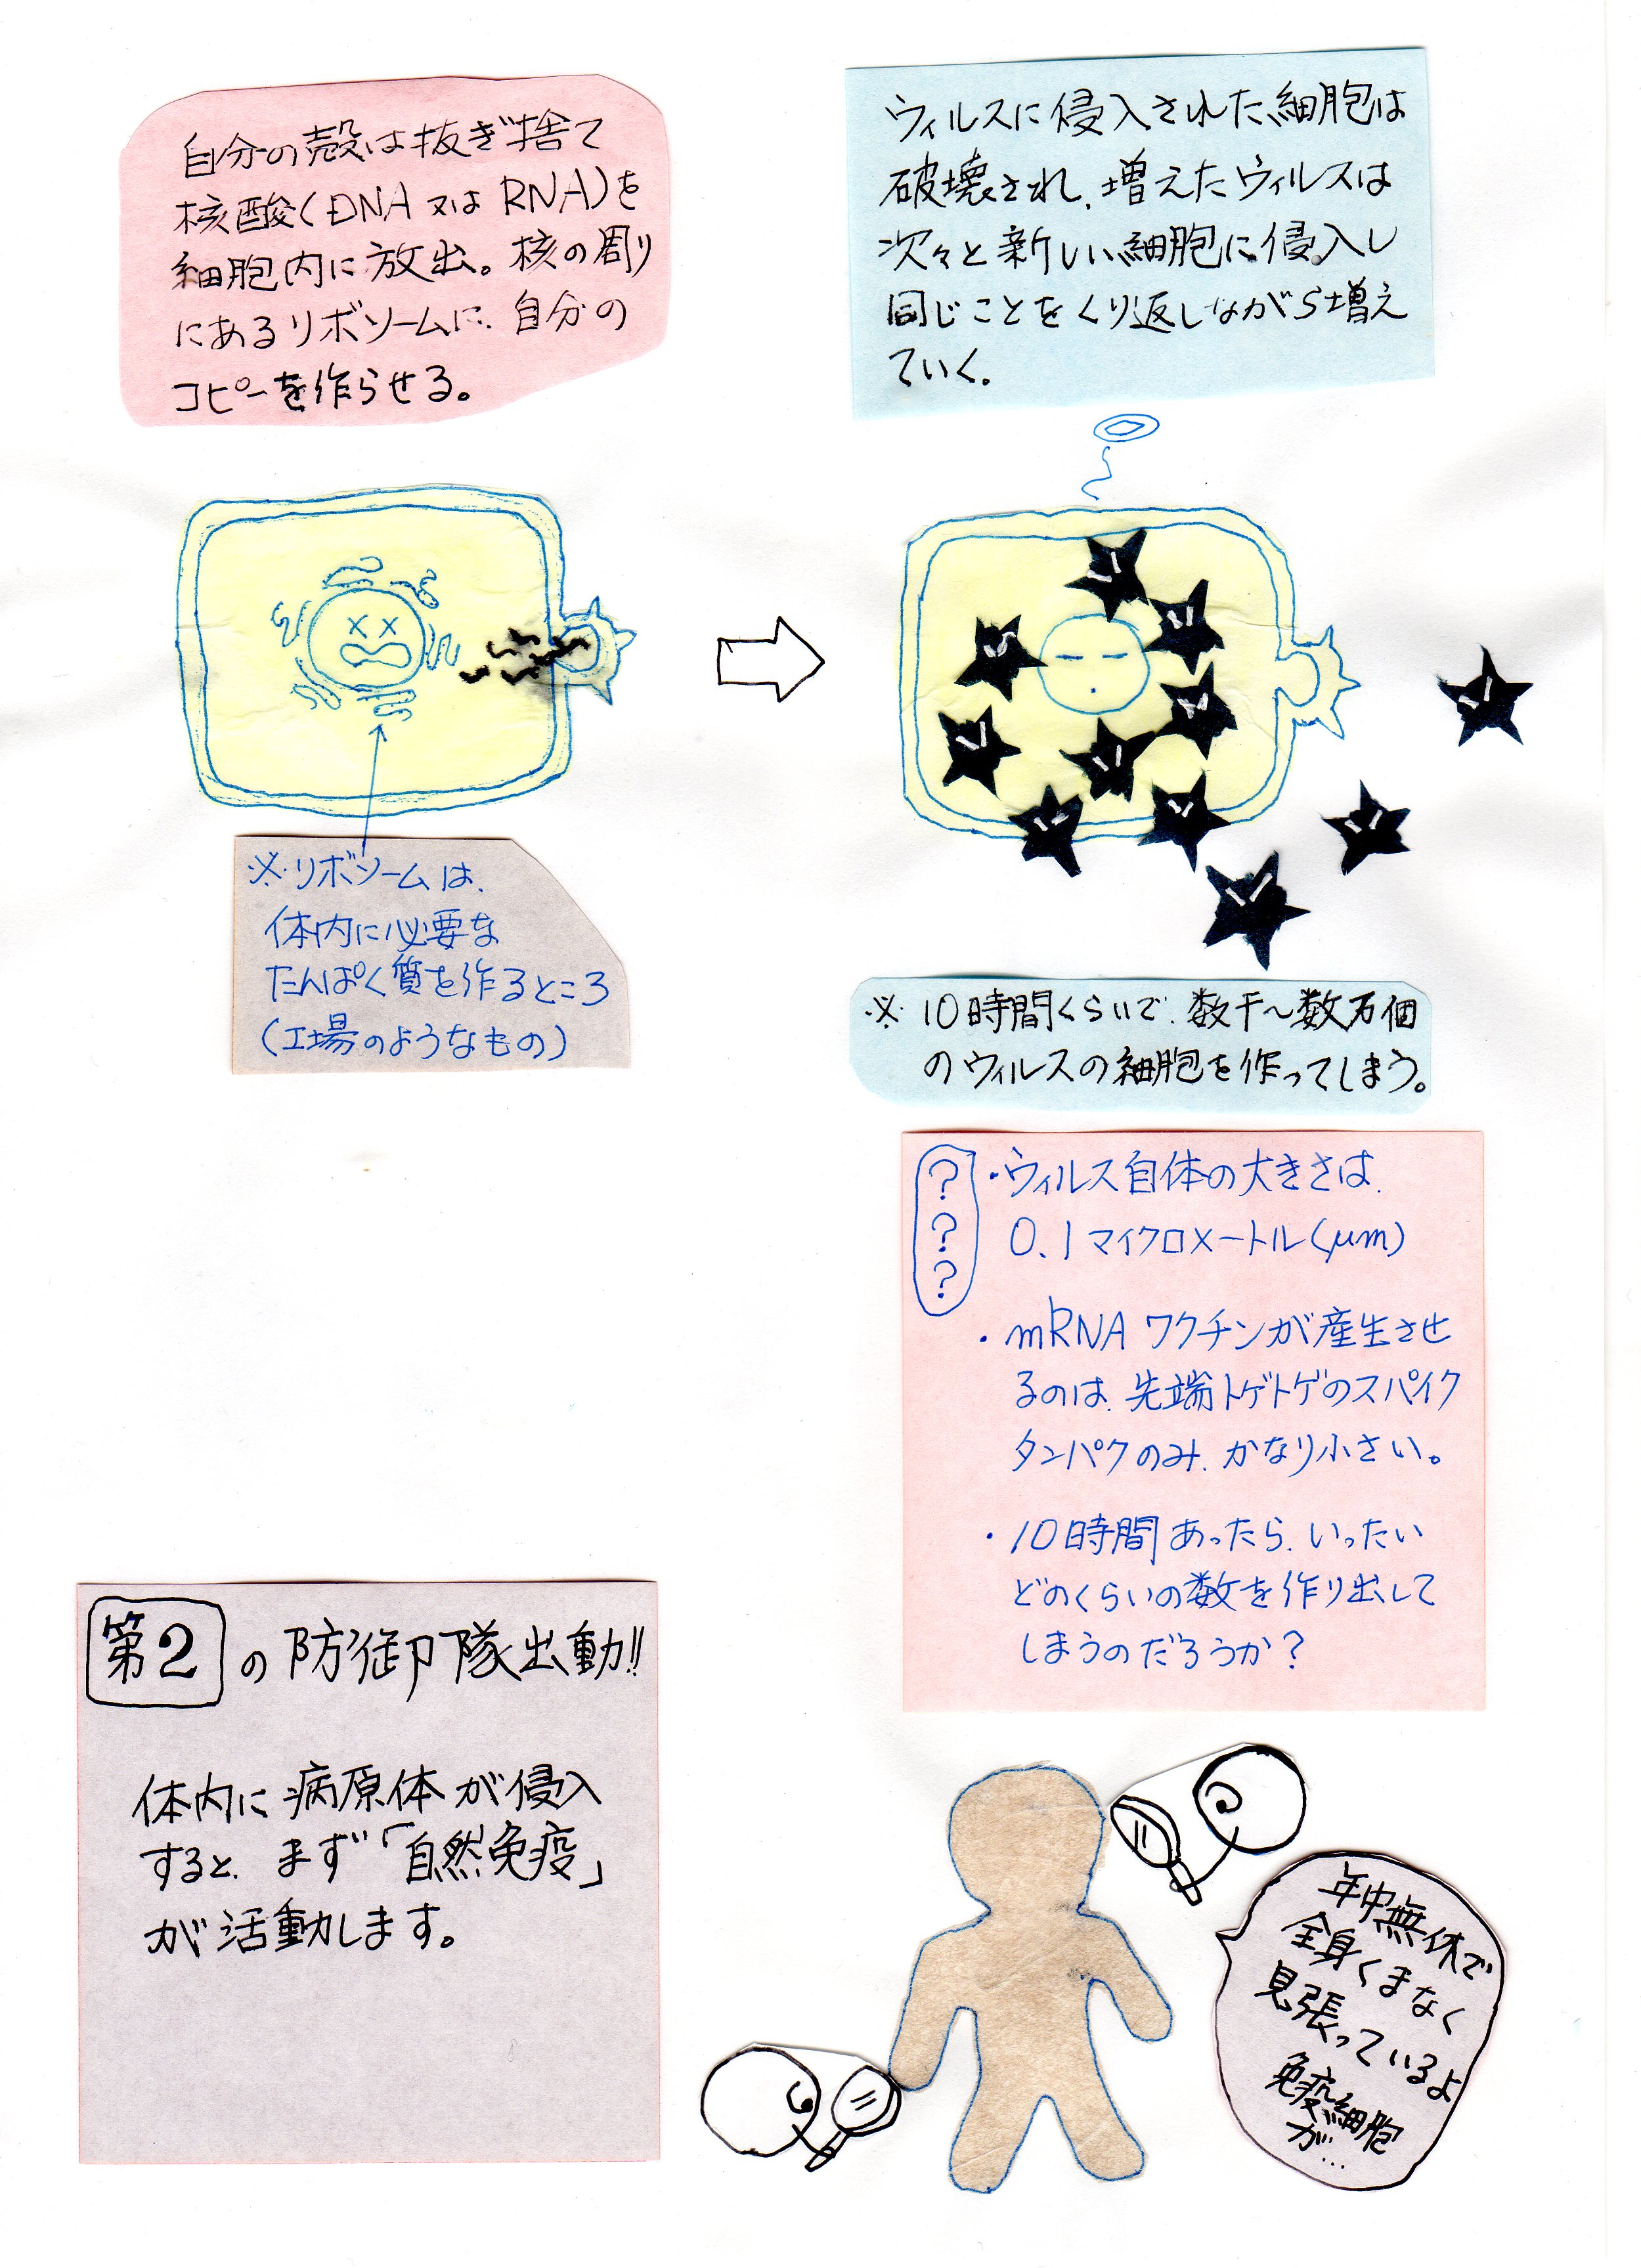 自分の殻は抜ぎ捨て
核酸(DNA 又は RNA)を
細胞内に放出。核の周り
にあるリボソームに、自分の
コピーを作らせる。
※リボソームは、
体内に必要な
たんぱく質を作るところ
(工場のようなもの)
ウィルスに侵入された細胞は
破壊され、増えたウィルスは
次々と新しい細胞に侵入し
同じことをくり返しながら増え
ていく。
※ 10時間くらいで、数千〜数万個
のウィルスの細胞を作ってしまう。
? ? ?
・ウィルス自体の大きさは、
0.1マイクロメートル(μm)
・mRNA ワクチンが産生させ
るのは、先端トゲトゲのスパイク
タンパクのみ、かなり小さい。
・10時間あったら、いったい
どのくらいの数を作り出して
しまうのだろうか?
第2の防御隊出動!!
体内に病原体が侵入
すると、まず「自然免疫」
が活動します。
年中無休で
全身くまなく
見張っているよ
免疫細胞
が…